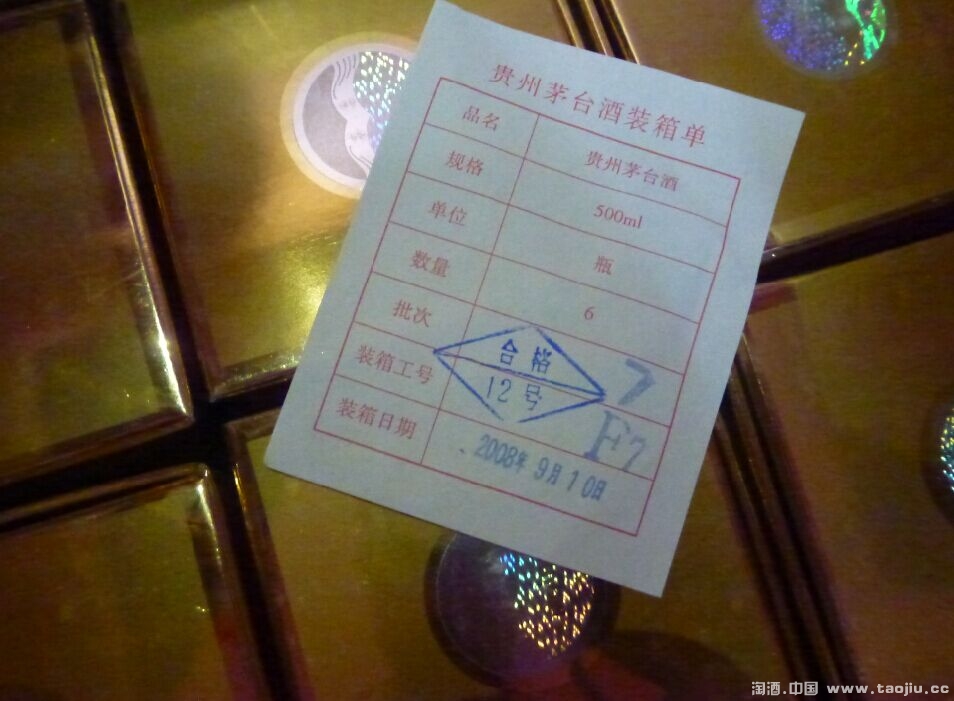 贵州茅台酒装箱单
品名 贵州茅台酒
规格 500ml
单位 瓶
数量 6
批次
合格
12号
7
装箱工号
F7
装箱日期 2008年9月10日
淘酒.中国 www.taojiu.cc